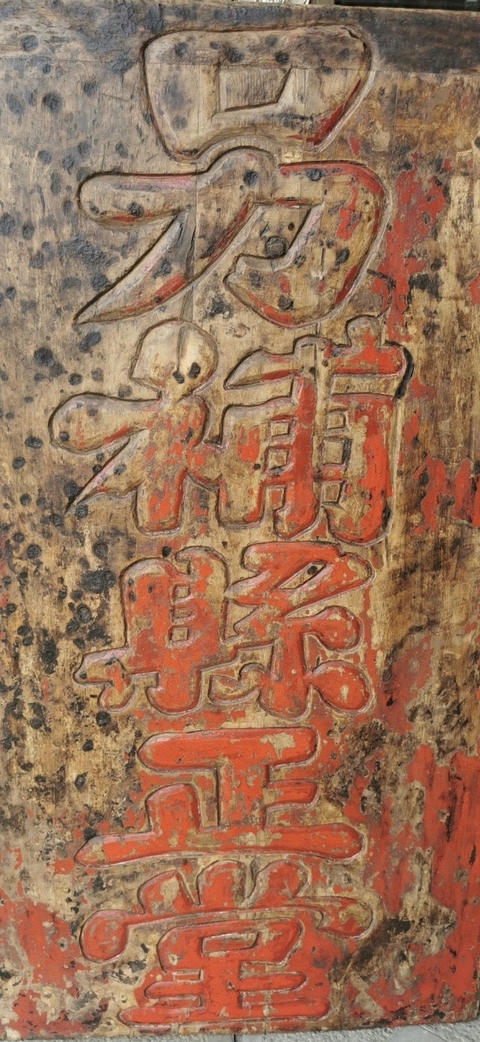 另補縣正堂